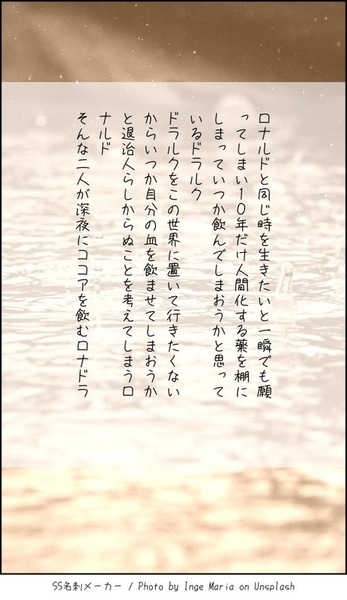 ロナルドと同じ時を生きたいと一瞬でも願
ってしまい10年だけ人間化する薬を棚に
しまっていつか飲んでしまおうかと思って
いるドラルク
ドラルクをこの世界に置いて行きたくない
からいつか自分の血を飲ませてしまおうか
と退治人らしからぬことを考えてしまうロ
ナルド
そんな二人が深夜にココアを飲むロナドラ
SS名刺メーカー / Photo by Inge Maria on Unsplash